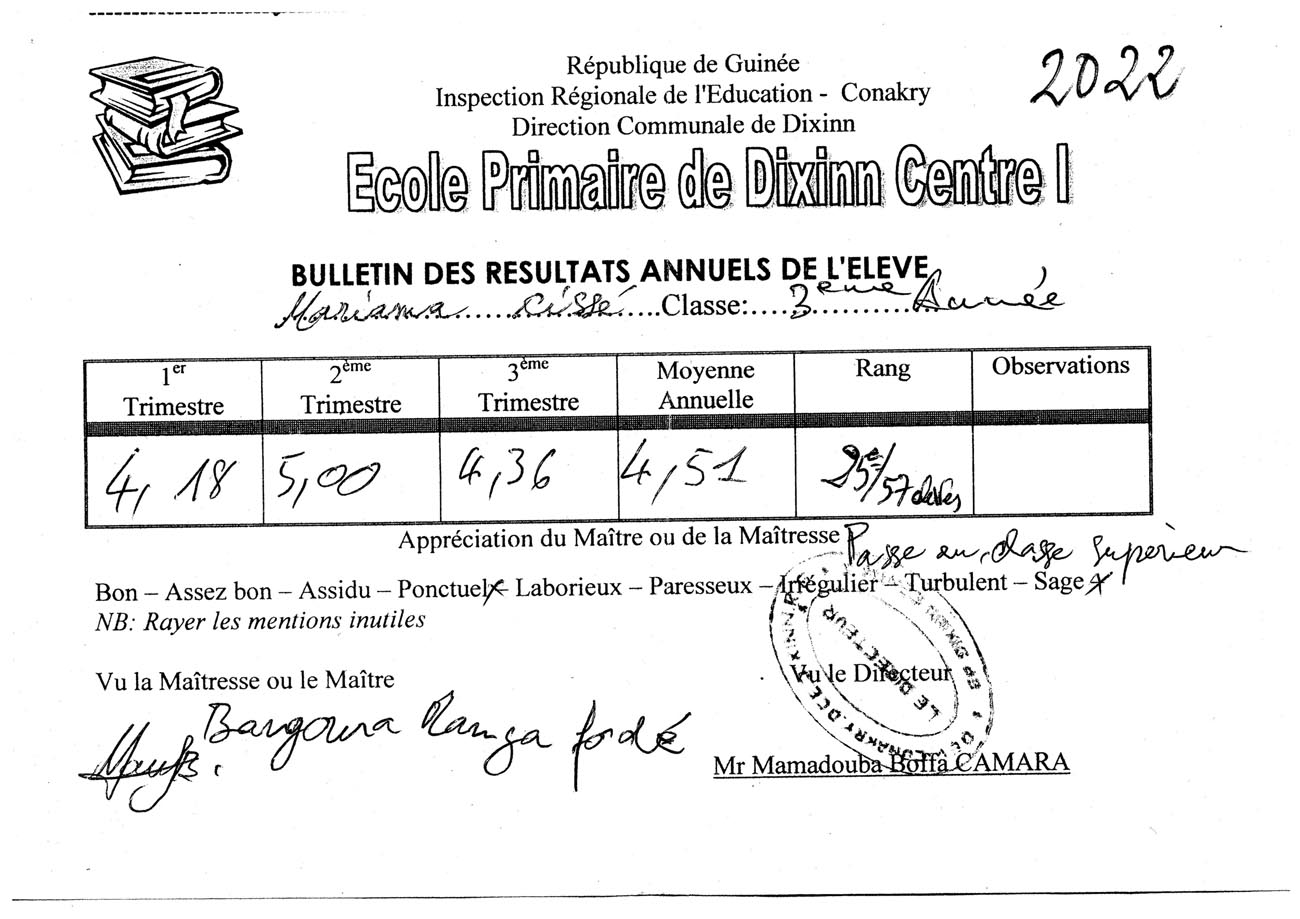 République de Guinée
2022
Inspection Régionale de l'Education - Conakry
Direction Communale de Dixinn
Ecole Primaire de Dixinn Centre I
BULLETIN DES RESULTATS ANNUELS DE L'ELEVE
Mariama Cissé Classe: 3ème Année
1er Trimestre 2ème Trimestre 3ème Trimestre Moyenne Annuelle Rang Observations
4,18 5,00 4,36 4,51 25e/57
Appréciation du Maître ou de la Maîtresse Passe en classe supérieur
Bon – Assez bon – Assidu – Ponctuel – Laborieux – Paresseux – Irrégulier – Turbulent – Sage
NB: Rayer les mentions inutiles
Vu la Maîtresse ou le Maître Vu le Directeur
LE DIRECTEUR
Bangoura fodé
Mr Mamadouba Boffa CAMARA